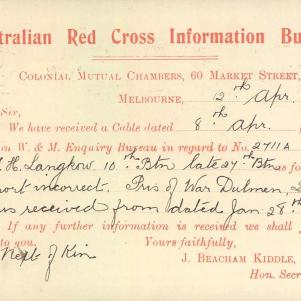 stralian Red Cross Information Bu
COLONIAL MUTUAL CHAMBERS, 60 MARKET STREET,
MELBOURNE, 12th Apr.
Sir,
We have received a Cable dated 8th Apr.
on W. & M. Enquiry Bureau in regard to No. 2711A
H. Langkow 10th Btn late 27th Btn as fo
ort incorrect. Pris of War Dulmen,
s received from dated Jan. 28th
If any further information is received we shall
to you. Yours faithfully,
Next of Kin J. BEACHAM KIDDLE,
Hon. Secr